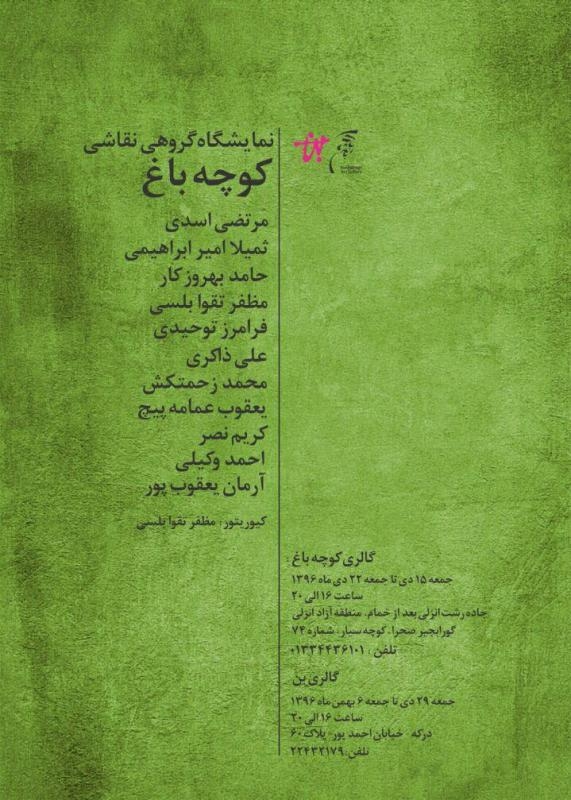 نمایشگاه گروهی نقاشی
کوچه باغ
مرتضی اسدی
ثمیلا امیر ابراهیمی
حامد بهروز کار
مظفر تقوا بلسی
فرامرز توحیدی
علی ذاکری
محمد زحمتکش
یعقوب عمامه پیچ
کریم نصر
احمد وکیلی
آرمان یعقوب پور
کیوریتور: مظفر تقوا بلسی
گالری کوچه باغ :
جمعه ۱۵ دی تا جمعه ۲۲ دی ماه ۱۳۹۶
ساعت ۱۶ الی ۲۰
جاده رشت انزلی بعد از خمام، منطقه آزاد انزلی
گورابجیر صحرا، کوچه سیار، شماره ۷۴
تلفن : ۰۱۳۳۴۴۳۶۱۰۱
گالری بن
جمعه ۲۹ دی تا جمعه ۶ بهمن ماه ۱۳۹۶
ساعت ۱۶ الی ۲۰
درکه - خیابان احمد پور- پلاک ۶۰
تلفن: ۲۲۴۳۲۱۷۹